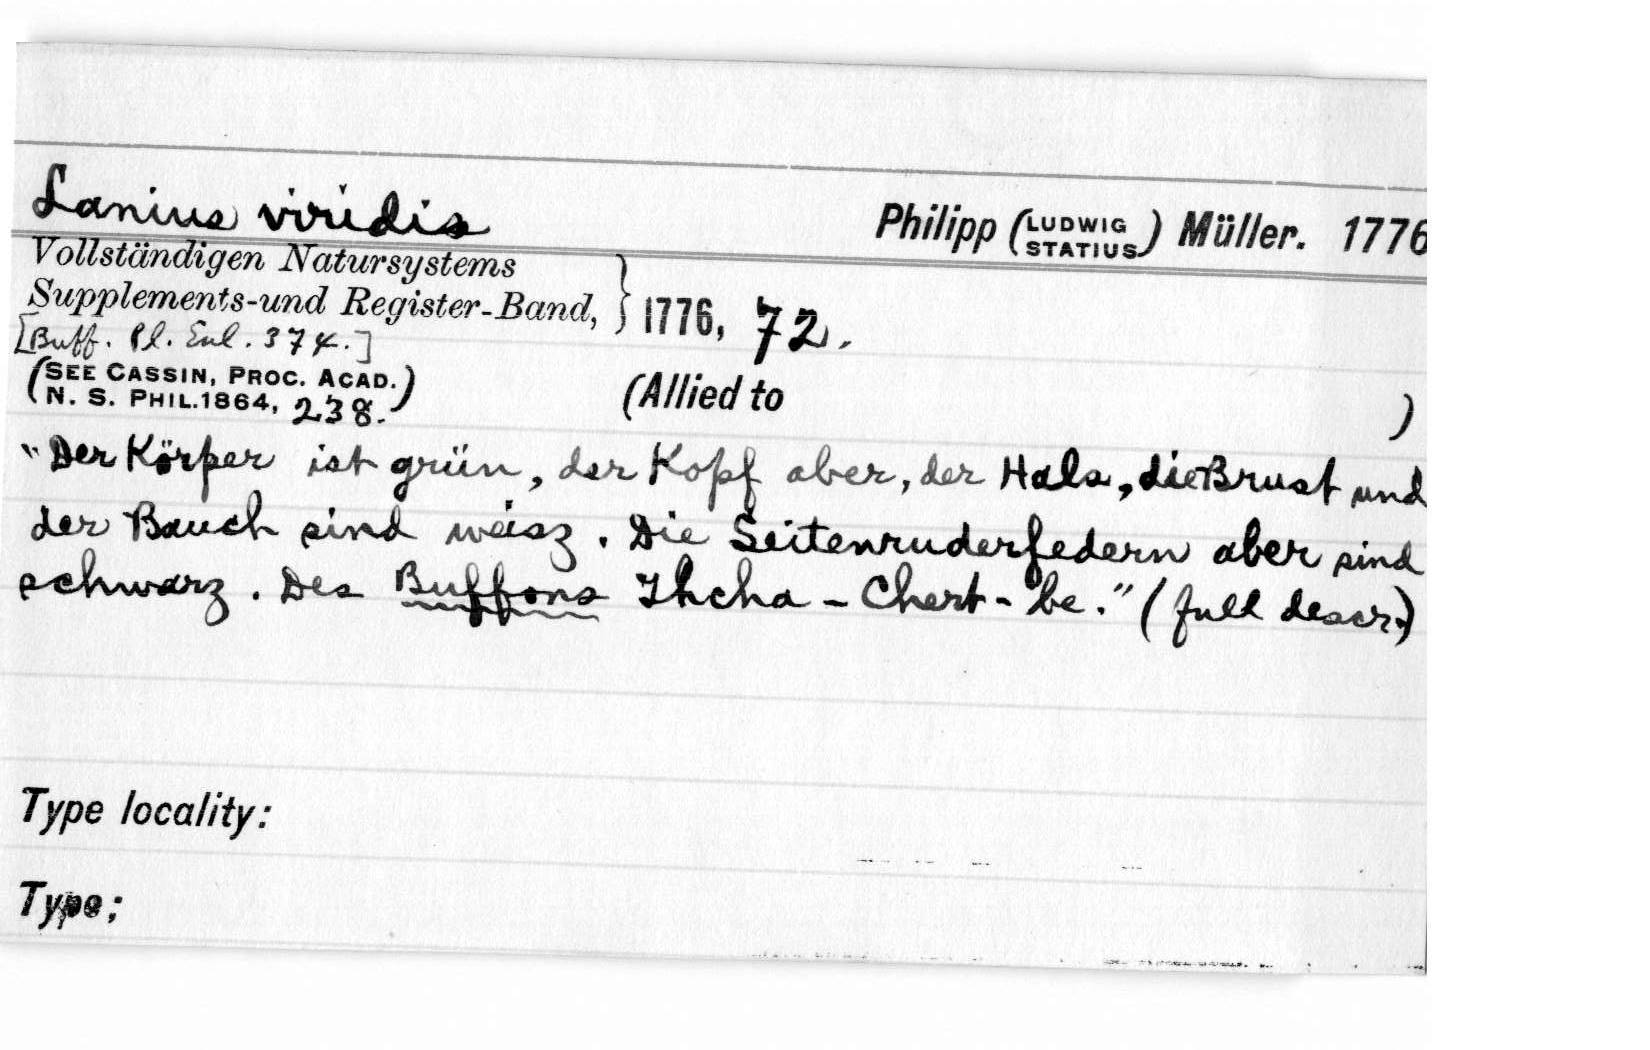 Lanius viridis
Philipp (LUDWIG STATIUS) Müller. 1776
Vollständigen Natursystems
Supplements-und Register-Band, } 1776, 72.
[Buff. Pl. Enl. 374.]
(SEE CASSIN, PROC. ACAD.
N. S. PHIL. 1864, 238.)
(Allied to )
"Der Körper ist grün, der Kopf aber, der Hals, die Brust und
der Bauch sind weisz. Die Seitenruderfedern aber sind
schwarz. Des Buffons Thcha-Chert-be." (full descr.)
Type locality:
Type;